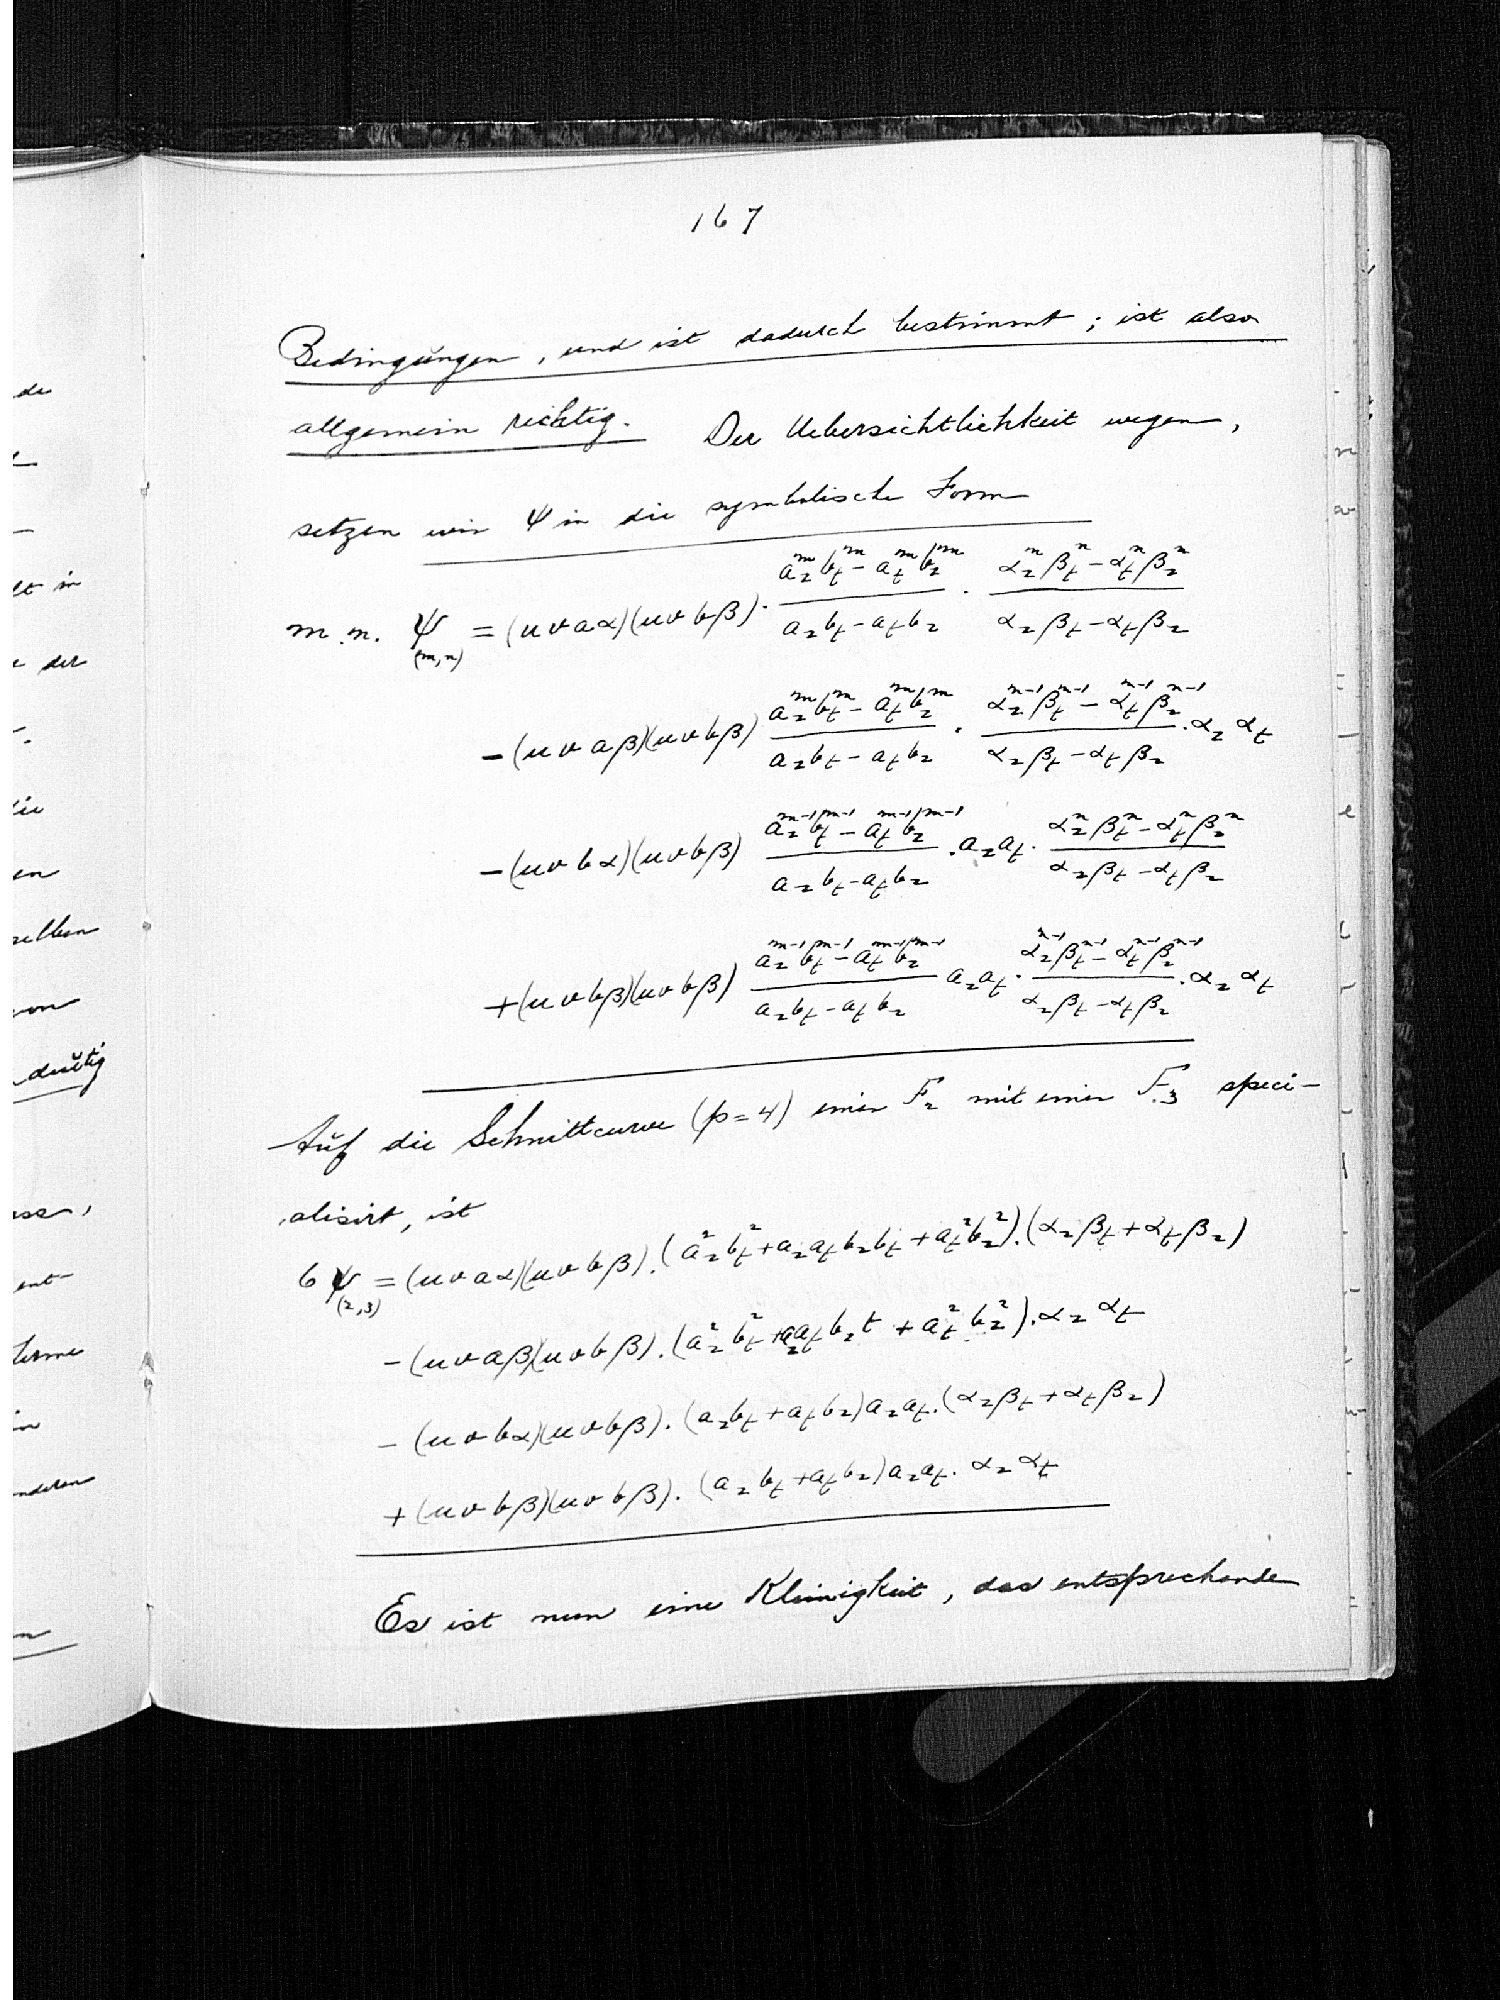 167
Bedingungen, und ist dadurch bestimmt; ist also
allgemein richtig. Der Uebersichtlichkeit wegen,
setzen wir Ψ in die symbolische Form
m.n. Ψ_(m,n) = (uvaα)(uvbβ)·(a_z^m b_t^m − a_t^m b_z^m)/(a_z b_t − a_t b_z) · (α_z^n β_t^n − α_t^n β_z^n)/(α_z β_t − α_t β_z)
−(uvaβ)(uvbβ) (a_z^m b_t^m − a_t^m b_z^m)/(a_z b_t − a_t b_z) · (α_z^{n-1} β_t^{n-1} − α_t^{n-1} β_z^{n-1})/(α_z β_t − α_t β_z) · α_z α_t
−(uvbα)(uvbβ) (a_z^{m-1} b_t^{m-1} − a_t^{m-1} b_z^{m-1})/(a_z b_t − a_t b_z) · a_z a_t · (α_z^n β_t^n − α_t^n β_z^n)/(α_z β_t − α_t β_z)
+(uvbβ)(uvbβ) (a_z^{m-1} b_t^{m-1} − a_t^{m-1} b_z^{m-1})/(a_z b_t − a_t b_z) a_z a_t · (α_z^{n-1} β_t^{n-1} − α_t^{n-1} β_z^{n-1})/(α_z β_t − α_t β_z) · α_z α_t
Auf die Schnittcurve (p=4) einer F_2 mit einer F_3 speci-
alisirt, ist
6 Ψ_(2,3) = (uvaα)(uvbβ).(a_z^2 b_t^2 + a_z a_t b_z b_t + a_t^2 b_z^2).(α_z β_t + α_t β_z)
−(uvaβ)(uvbβ).(a_z^2 b_t^2 + a_z a_t b_z t + a_t^2 b_z^2).α_z α_t
−(uvbα)(uvbβ).(a_z b_t + a_t b_z)a_z a_t.(α_z β_t + α_t β_z)
+(uvbβ)(uvbβ).(a_z b_t + a_t b_z)a_z a_t. α_z α_t
Es ist nun eine Kleinigkeit, das entsprechende